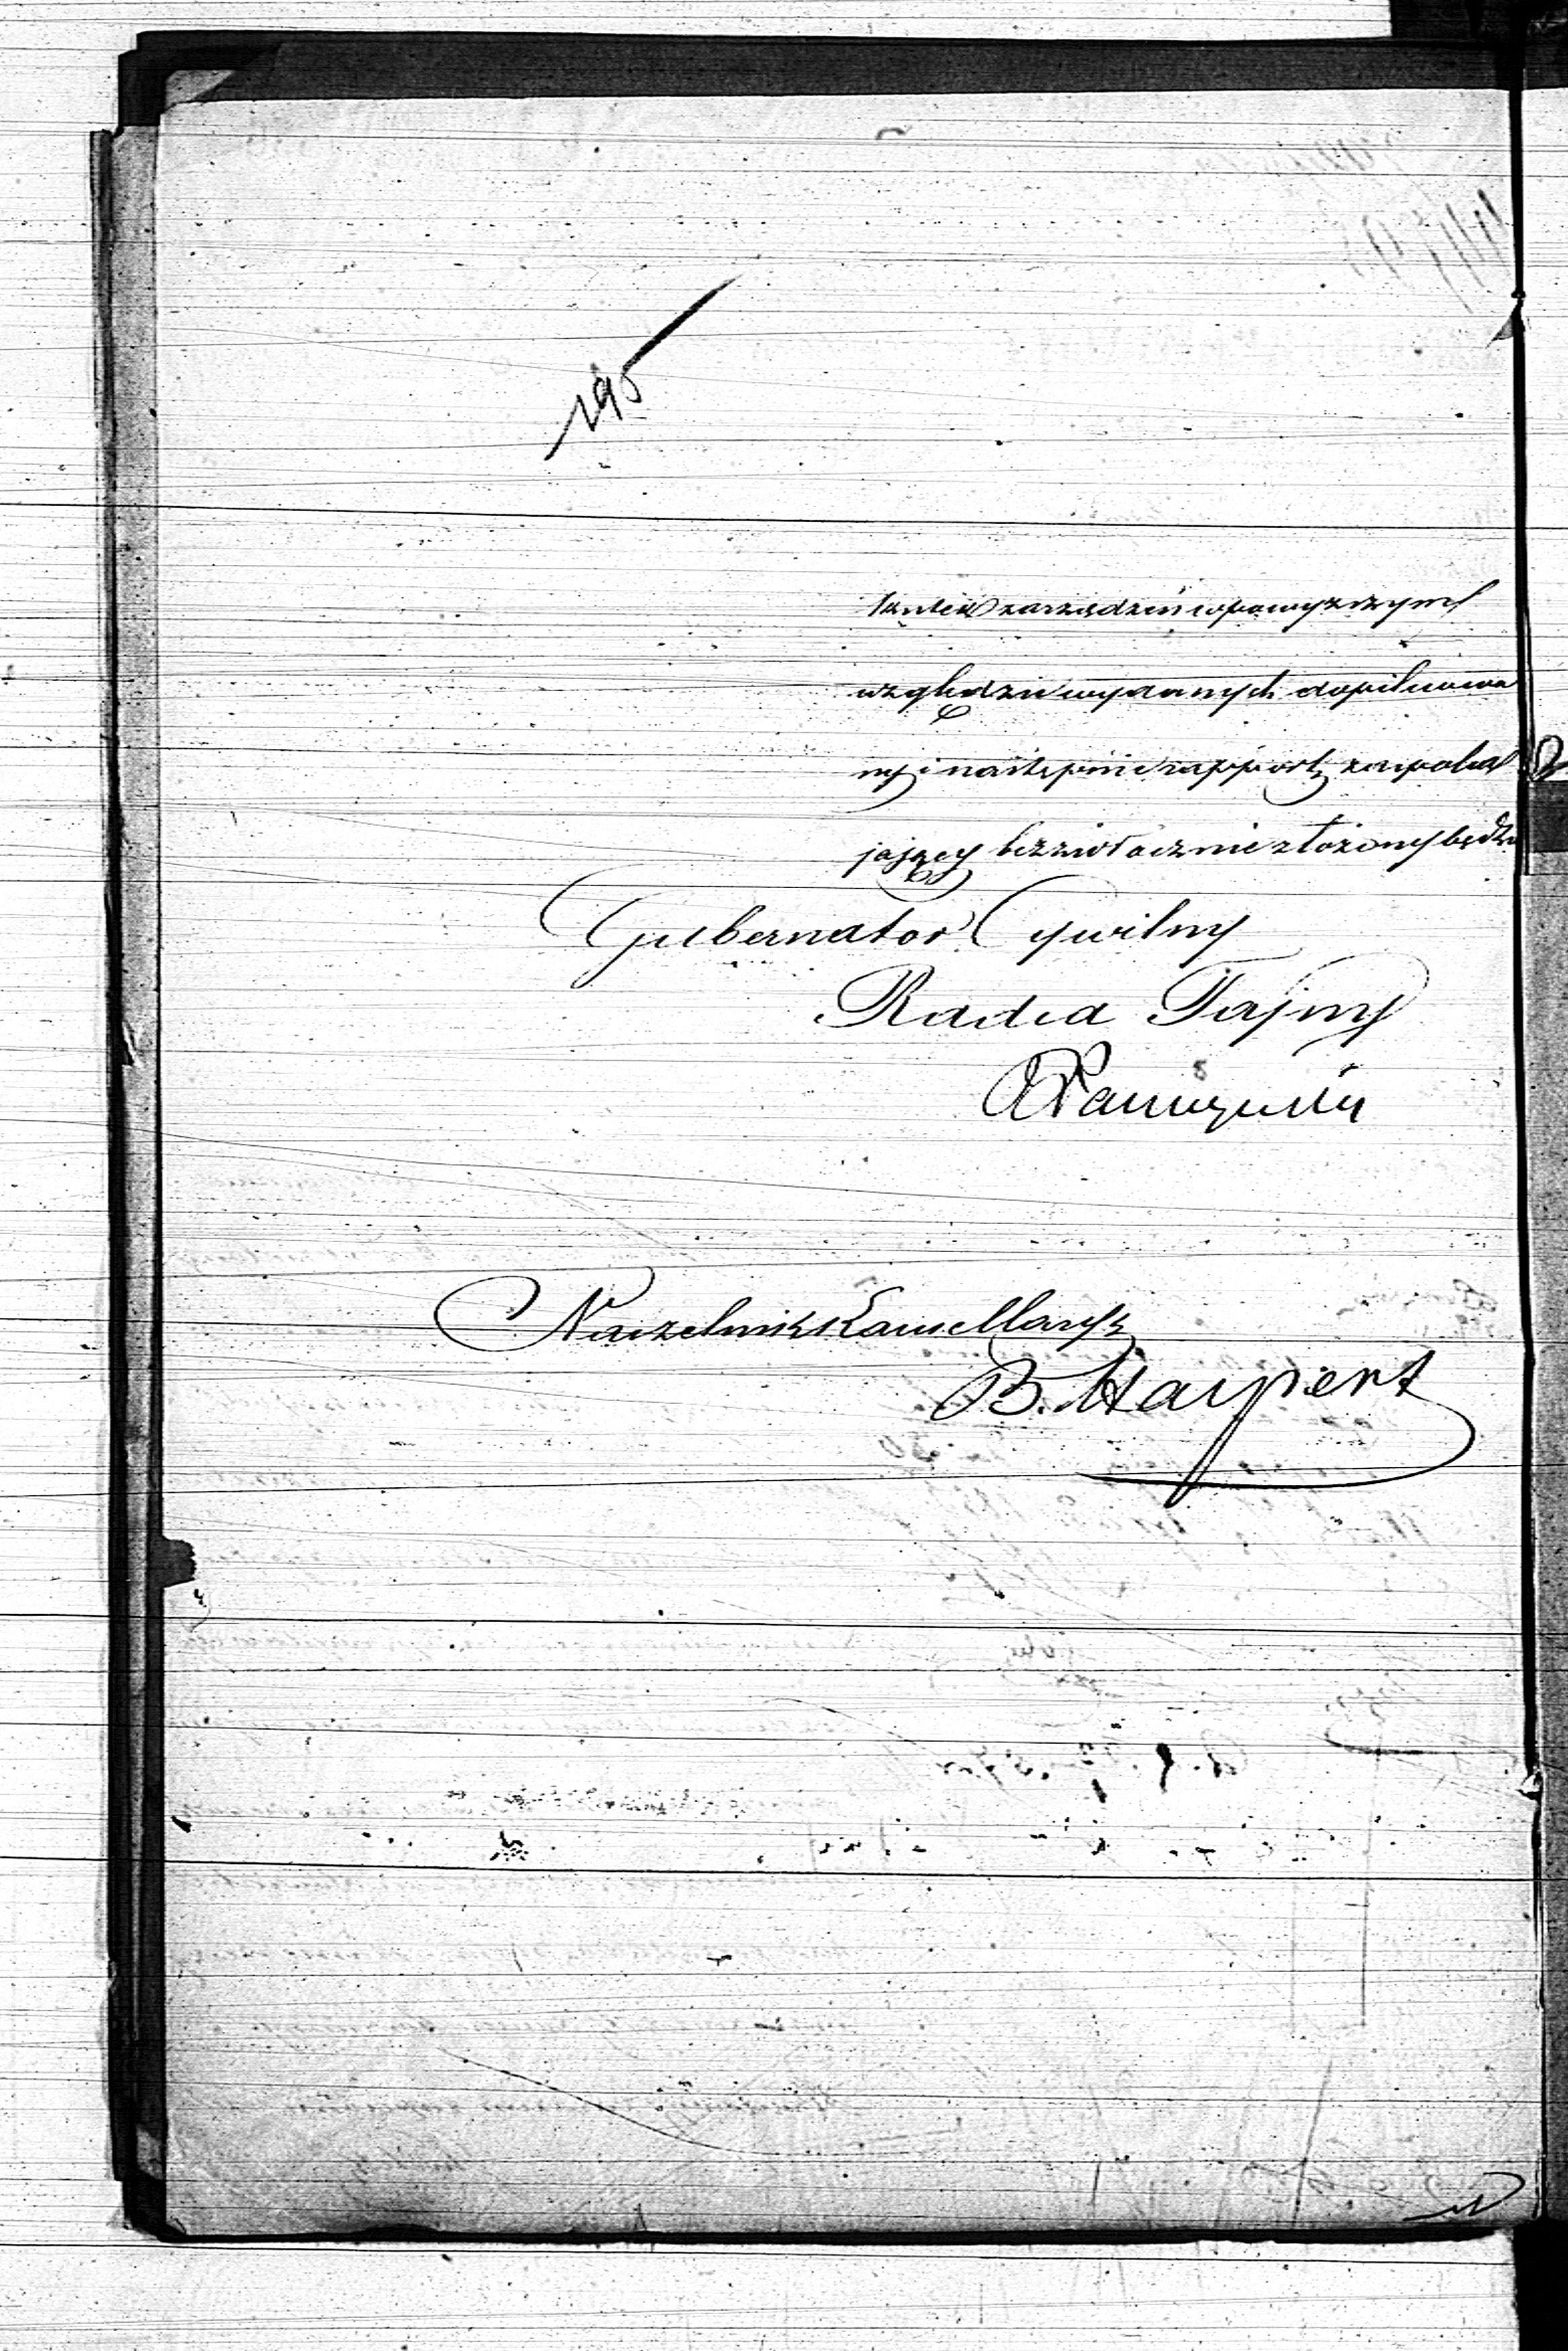 195
skutek zarządzeń w powyższym
względzie wydanych dopilnowa
ny i następnie rapport zaspoka
jający bezzwłocznie złożony będzie
Gubernator Cywilny
Radca Tajny
Naczelnik Kancellaryi
B. Halpert